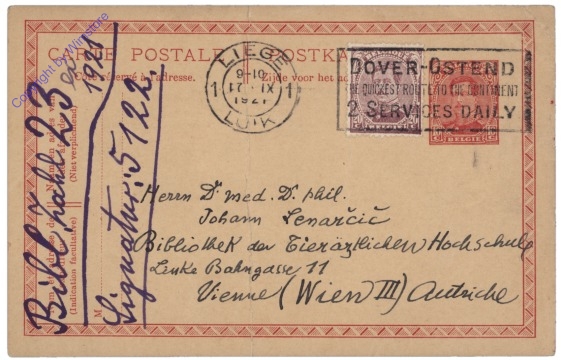 CARTE POSTALE POSTKA
Côté réservé à l'adresse.
Zijde voor het ad
LIEGE
9-10
XI 21
1921
LUIK
1 1
DOVER-OSTEND
THE QUICKEST ROUTE TO THE CONTINENT
2 SERVICES DAILY
BELGIE
Herrn Dr med. Dr phil.
Johann Lenarčić
Bibliothek der Tierärztlichen Hochschule
Linke Bahngasse 11
Vienne (Wien III) Autriche
Bibl. zahl. 23
1921
Signatur: 5122
(Indication facultative)
(Niet verplichtend)
M
Copyright by Winstore